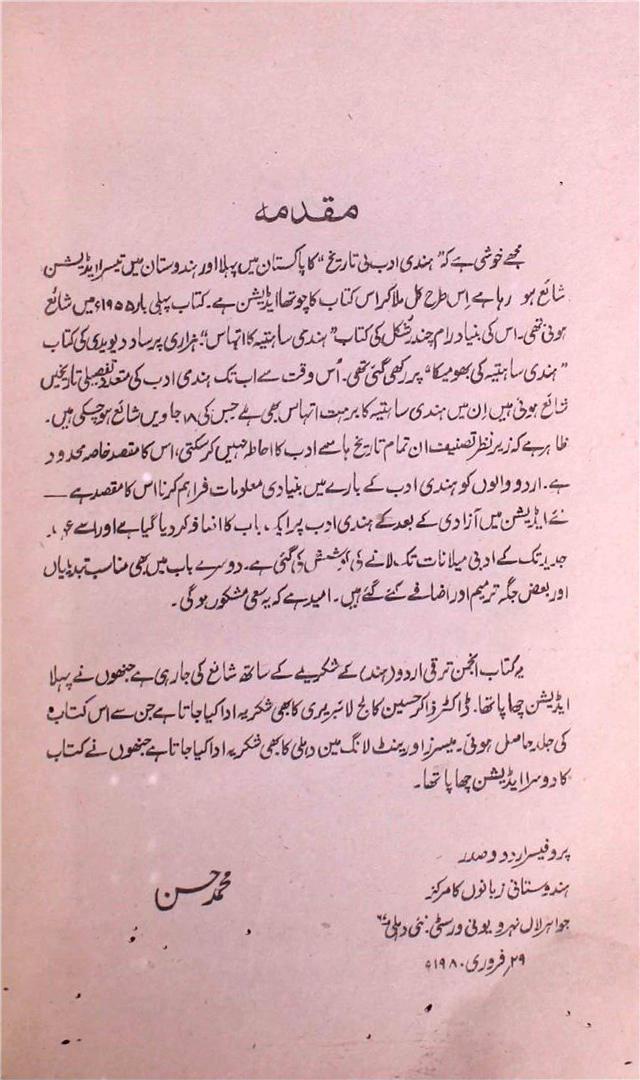 مقدمہ
مجھے خوشی ہے کہ "ہندی ادب کی تاریخ" کا پاکستان میں پہلا اور ہندوستان میں تیسرا ایڈیشن
شائع ہو رہا ہے اِس طرح کل ملا کر اس کتاب کا چوتھا ایڈیشن ہے۔ کتاب پہلی بار ۱۹۵۵ء میں شائع
ہوئی تھی۔ اس کی بنیاد رام چندر شکل کی کتاب "ہندی ساہتیہ کا اتہاس"۔ ہزاری پرساد دیویدی کی کتاب
"ہندی ساہتیہ کی بھومیکا" پر رکھی گئی تھی۔ اُس وقت سے اب تک ہندی ادب کی متعدد تفصیلی تاریخیں
شائع ہوئی ہیں اِن میں ہندی ساہتیہ کا برہت اتہاس بھی ہے جس کی ۱۸ جلدیں شائع ہو چکی ہیں۔
ظاہر ہے کہ زیرِ نظر تصنیف ان تمام تاریخ ہائے ادب کا احاطہ نہیں کر سکتی، اس کا مقصد خاصہ محدود
ہے۔ اردو والوں کو ہندی ادب کے بارے میں بنیادی معلومات فراہم کرنا اس کا مقصد ہے —
نئے ایڈیشن میں آزادی کے بعد کے ہندی ادب پر ایک باب کا اضافہ کر دیا گیا ہے اور اسے
جدید تک کے ادبی میلانات تک لانے کی کوشش کی گئی ہے۔ دوسرے باب میں بھی مناسب تبدیلیاں
اور بعض جگہ ترمیم اور اضافے کئے گئے ہیں۔ امید ہے کہ یہ سعی مشکور ہوگی۔
یہ کتاب انجمن ترقی اردو (ہند) کے شکریے کے ساتھ شائع کی جا رہی ہے جنھوں نے پہلا
ایڈیشن چھاپا تھا۔ ڈاکٹر ذاکر حسین کالج لائبریری کا بھی شکریہ ادا کیا جاتا ہے جن سے اس کتاب
کی جلد حاصل ہوئی۔ میسرز اورینٹ لانگ مین دہلی کا بھی شکریہ ادا کیا جاتا ہے جنھوں نے کتاب
کا دوسرا ایڈیشن چھاپا تھا۔
پروفیسر اردو و صدر
ہندوستانی زبانوں کا مرکز
جواہر لال نہرو یونی ورسٹی۔ نئی دہلی ۶۷
۲۹ فروری ۱۹۸۰ء
محمد حسن